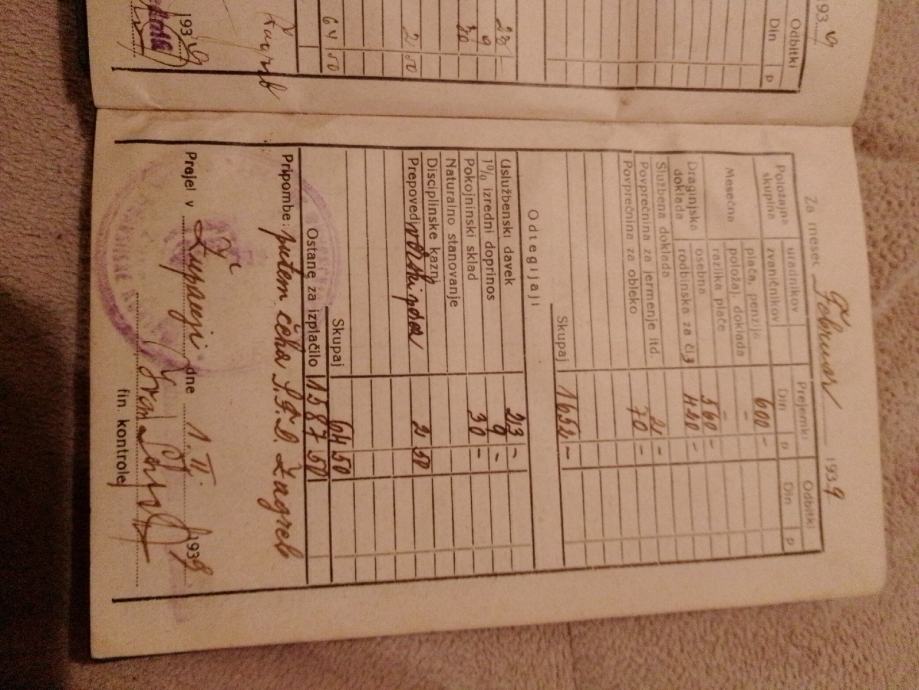 Za mesec Februar 1939
Prejemki Odbitki
Din p Din p
Položajna skupina uradnikov
zvaničnikov
Mesečna plača, penzija 600 -
položaj. doklada -
razlika plače -
Draginjska doklada osebna 560 -
rodbinska za čl. 3 420 -
Službena doklada
Povprečnina za jermenje itd. 2 -
Povprečnina za obleko 70 -
Skupaj 1652 -
Odtegljaji
Uslužbenski davek 23 -
1% izredni doprinos 9 -
Pokojninski sklad 30 -
Naturalno stanovanje
Disciplinske kazni
Prepovedi 2 50
Skupaj 64 50
Ostane za izplačilo 1587 50
Pripombe: putem čeka Zagreb
Prejel v Županji dne 1. II. 1939
fin. kontrole
193 9
Odbitki
Din p
23
9
30
2 50
64 50
193 9